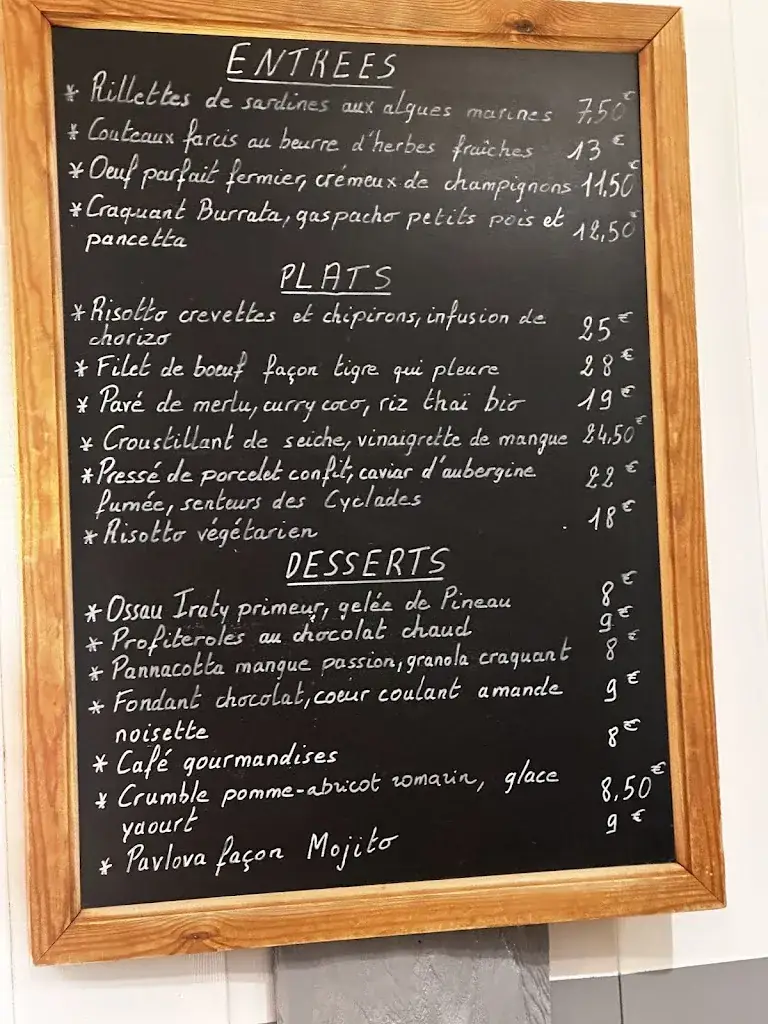 ENTREES
* Rillettes de sardines aux algues marines 7,50€
* Couteaux farcis au beurre d'herbes fraîches 13€
* Oeuf parfait fermier, crémeux de champignons 11,50€
* Craquant Burrata, gaspacho petits pois et 12,50€
pancetta
PLATS
* Risotto crevettes et chipirons, infusion de
chorizo 25€
* Filet de boeuf façon tigre qui pleure 28€
* Pavé de merlu, curry coco, riz thaï bio 19€
* Croustillant de seiche, vinaigrette de mangue 24,50€
* Pressé de porcelet confit, caviar d'aubergine 22€
fumée, senteurs des Cyclades
* Risotto végétarien . 18€
DESSERTS
* Ossau Iraty primeur, gelée de Pineau 8€
* Profiteroles au chocolat chaud 9€
* Pannacotta mangue passion, granola craquant 8€
* Fondant chocolat, coeur coulant amande 9€
noisette
* Café gourmandises 8€
* Crumble pomme-abricot romarin, glace 8,50€
yaourt
* Pavlova façon Mojito 9€